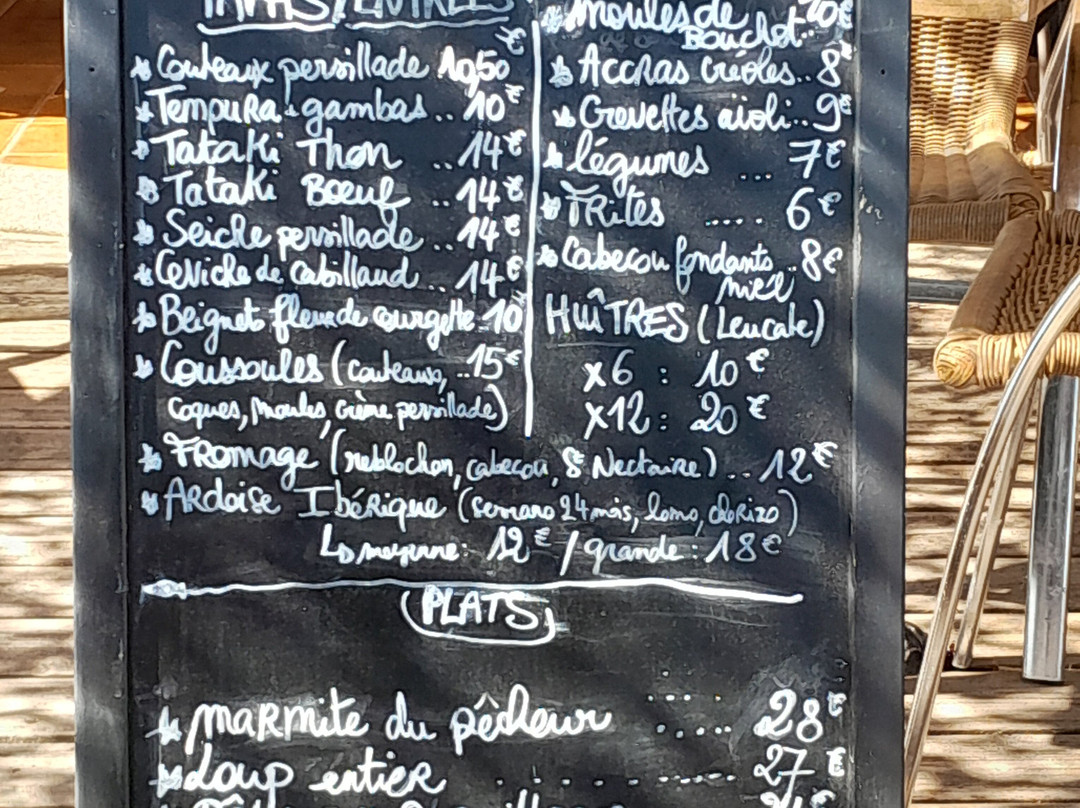 TAPAS/ENTRÉES
★ Couteaux persillade 10,50 €
★ Tempura gambas .. 10 €
★ Tataki Thon .. 14 €
★ Tataki Boeuf .. 14 €
★ Seiche persillade .. 14 €
★ Ceviche de cabillaud .. 14 €
★ Beignets fleur de courgette .. 10
★ Coussoules (couteaux, .. 15 €
coques, moules, crème persillade)
★ moules de 10 €
Bouchot ..
★ Accras créoles .. 8 €
★ Crevettes aïoli .. 9 €
★ légumes ... 7 €
★ FRites .... 6 €
★ Cabecou fondants .. 8 €
miel
HUÎTRES (Leucate)
x6 : 10 €
x12 : 20 €
★ FRomage (reblochon, cabecou, St Nectaire) .. 12 €
★ Ardoise Ibérique (serrano 24 mois, lomo, chorizo)
↳ moyenne : 12 € / grande : 18 €
PLATS
★ marmite du pêcheur ..... 28 €
★ Loup entier ..... 27 €